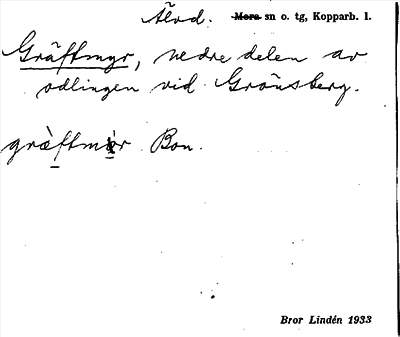 Älvd. Mora sn o. tg, Kopparb. l.
Gräftmyr, nedre delen av
odlingen vid Gränsberg.
grὰftmỳr Bon.
Bror Lindén 1933